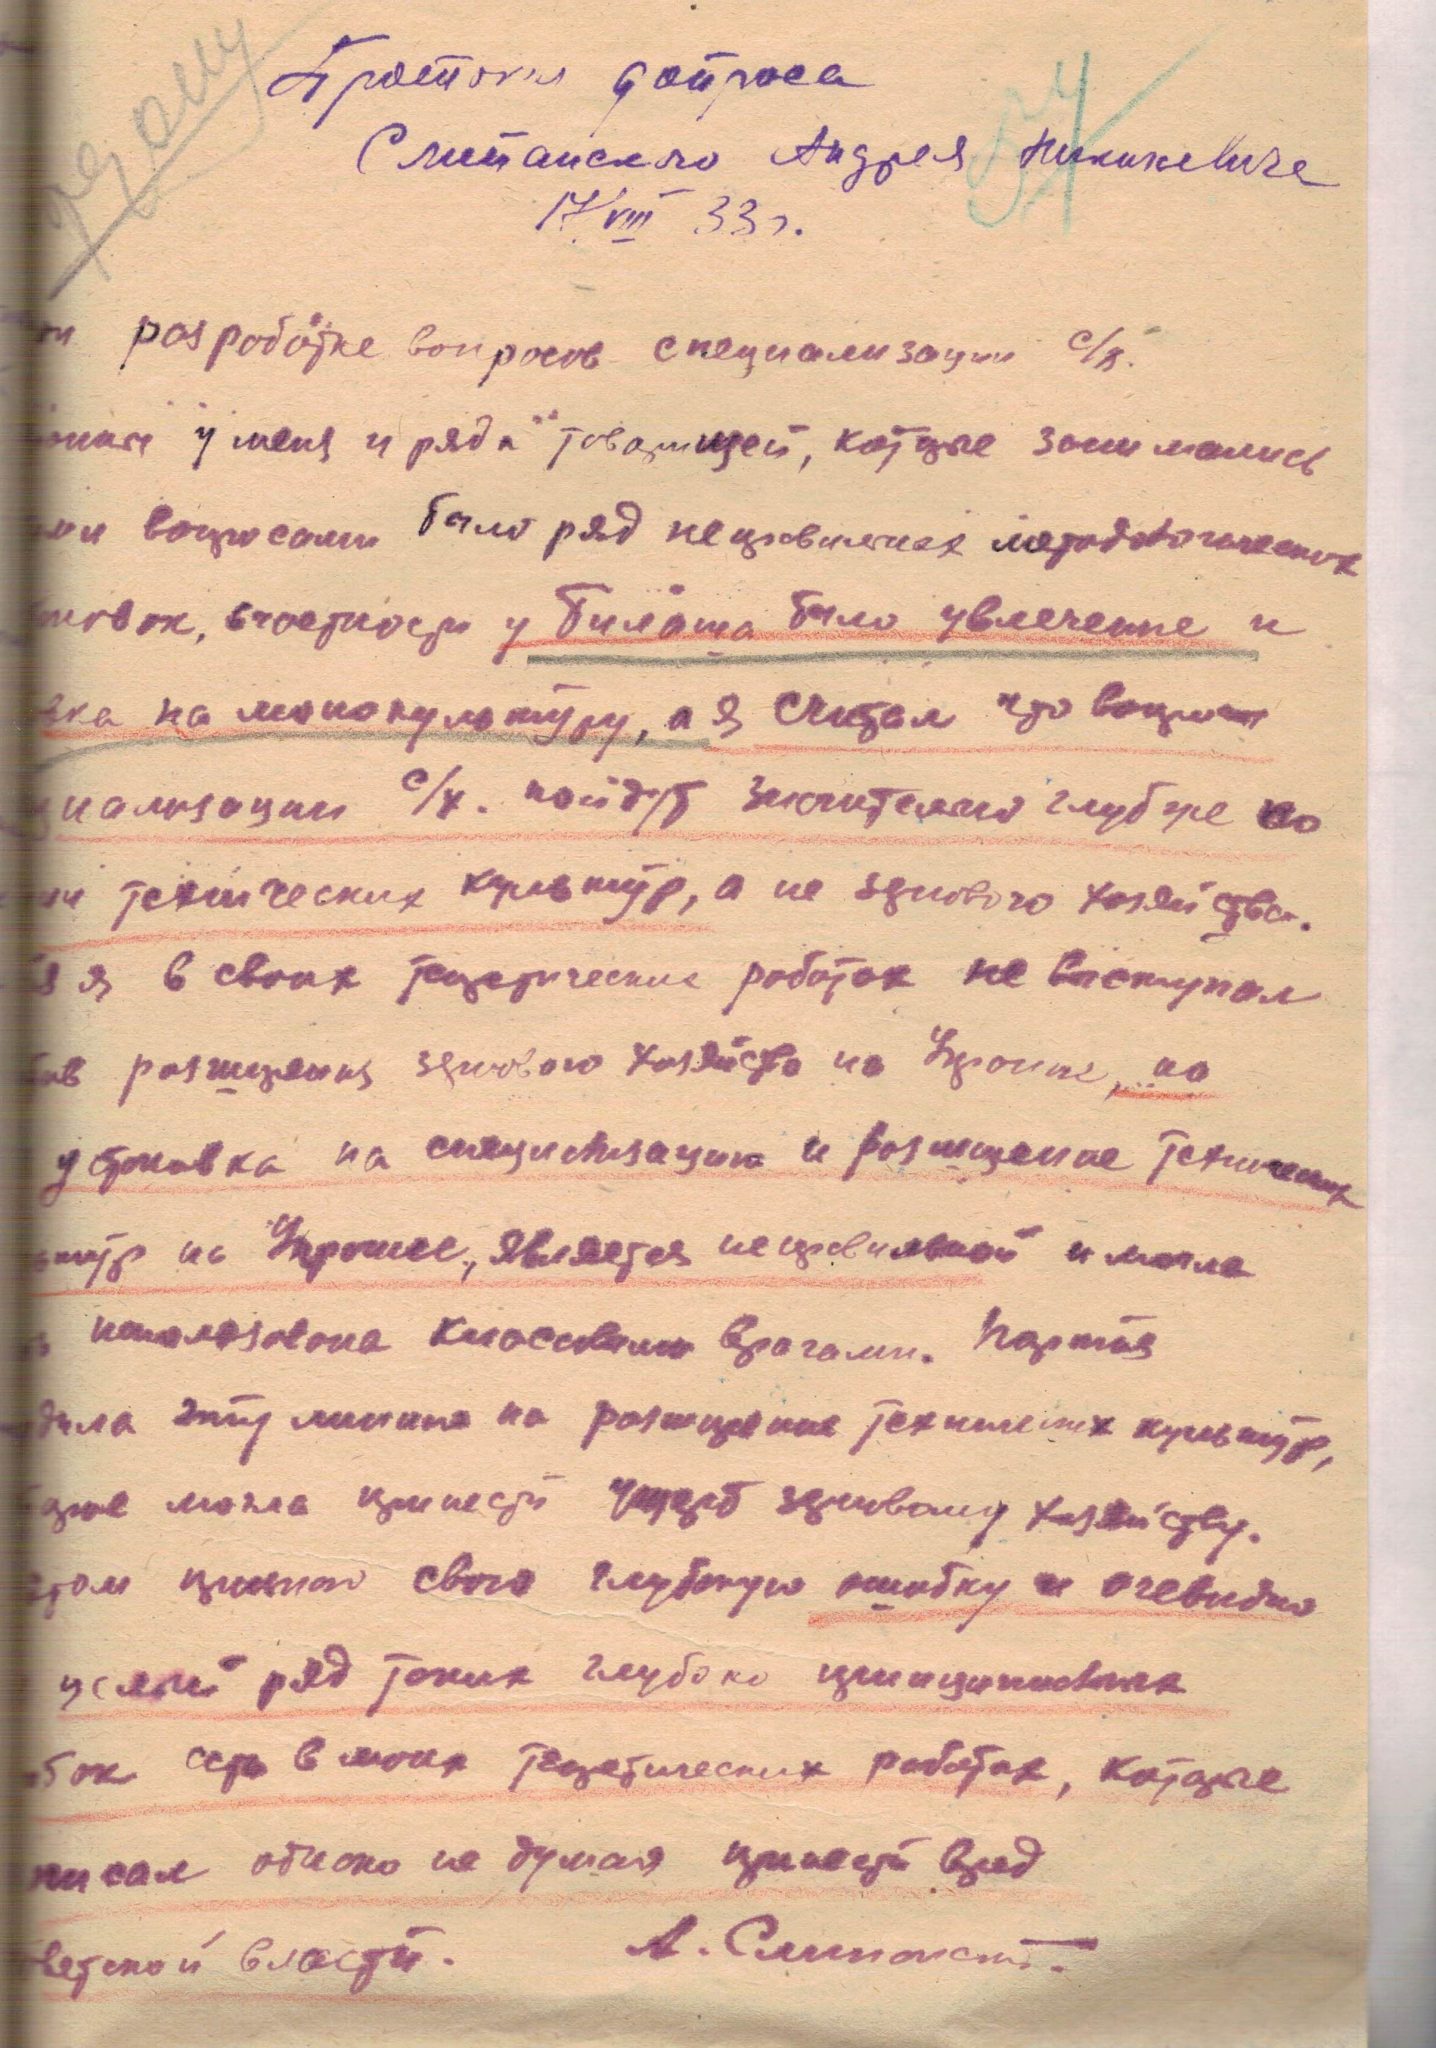 Протокол допроса
Слипанского Андрея
17/VIII 33 г.
розроботке вопросов специализации с/х.
у меня и ряда товарищей, которые занимались
вопросами было ряд неправильных методологических
вок, в частности у Билаша было увлечение и
вка на монокультуру, а я считал что вопросы
циализации с/х. пойдут значительно глубже по
технических культур, а не зернового хозяйства.
я в своих теоретических роботах не виступал
тив розширения зернового хозяйства на Украине, но
установка на специализацию и розширение технических
тур на Украине, является неправильной и могла
использована классовыми врагами. Партия
дила эту линию на розширение технических культур,
торые могла принести ущерб зерновому хозяйству.
этом признаю свою глубокую ошибку и очевидно
целый ряд таких глубоко принципиовых
бок есть в моих теоретических роботах, которые
писал однако не думая принести вред
ветской власти. А. Слипанский.